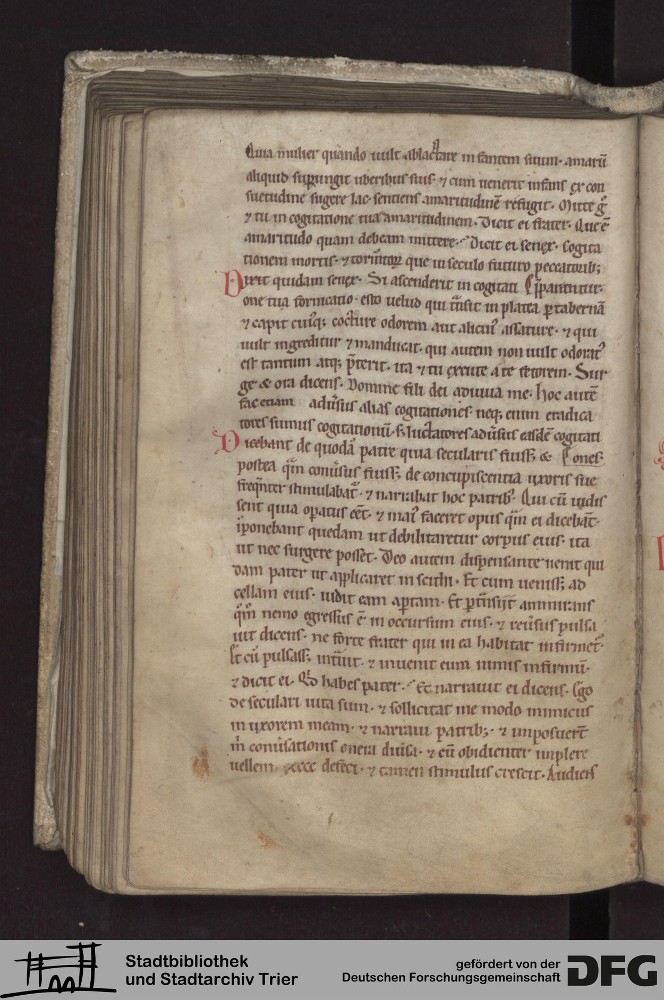 Quia mulier quando uult ablactare infantem suum· amarū
aliquid supungit uberibus suis· ⁊ cum uenerit infans ex con
suetudine sugere lac· sentiens amaritudinē refugit· Mitte g̊
⁊ tu in cogitatione tua amaritudinem· Dicit ei frater· Que ē
amaritudo quam debeam mittere· Dicit ei senex· Cogita
tionem mortis· ⁊ que in seculo futuro peccatorib;
Dixit quidam senex· Si ascenderit in cogitati
one tua fornicatio· esto uelud qui t̄nsit in platea p tabernā
⁊ capit cuiq; cocture odorem aut alicui᾽ assature· ⁊ qui
uult ingreditur ⁊ manducat· qui autem non uult odorat᾽
est tantum atq; p̄terit· ita ⁊ tu excute a te fetorem· Sur
ge ⁊ ora dicens· Domine fili dei adiuua me· hoc autē
fac etiam adūsus alias cogitationes· neq; enim eradica
tores sumus cogitationū· s; luctatores adūsus easdē cogitati
Dicebant de quodā patre quia secularis fuiss; ⁊ ones·
postea q̄m conūsus fuiss; de concupiscentia uxoris sue
freqnter stimulabat᾽· ⁊ narrabat hoc patrib᾽· Qui cū uidis
sent quia opatus eēt· ⁊ mai᾽ faceret opus q̄m ei dicebāt·
īponebant quedam ut debilitaretur corpus eius· ita
ut nec surgere posset· Deo autem dispensante uenit qui
dam pater ut applicaret in scithi· Et cum ueniss; ad
cellam eius· uidit eam aptam· Et ptnsiit ammirans
q̄m nemo egressus ē in occursum eius· ⁊ reūsus pulsa
uit dicens· ne forte frater qui in ea habitat infirmet᾽·
Et cū pulsass; intuit· ⁊ inuenit eum nimis infirmū·
⁊ dicit ei· Qd habes pater· Et narrauit ei dicens· Ego
de seculari uita sum· ⁊ sollicitat me modo inimicus
in uxorem meam· ⁊ narraui patrib;· ⁊ imposuert
m̄ conūsationis onera diūsa· ⁊ eū obidienter implere
uellem· defeci· ⁊ tamen stimulus crescit· Audiens
Stadtbibliothek
und Stadtarchiv Trier
gefördert von der
Deutschen Forschungsgemeinschaft
DFG